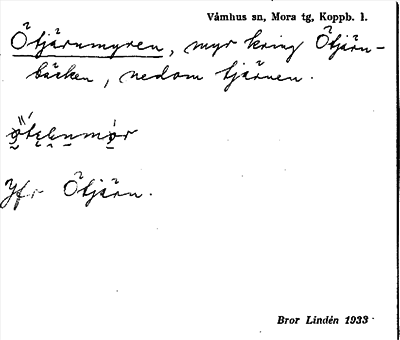 Våmhus sn, Mora tg, Koppb. l.
Ötjärnmyren, myr kring Ötjärn-
bäcken, nedom tjärnen.
Jfr Ötjärn.
Bror Lindén 1933